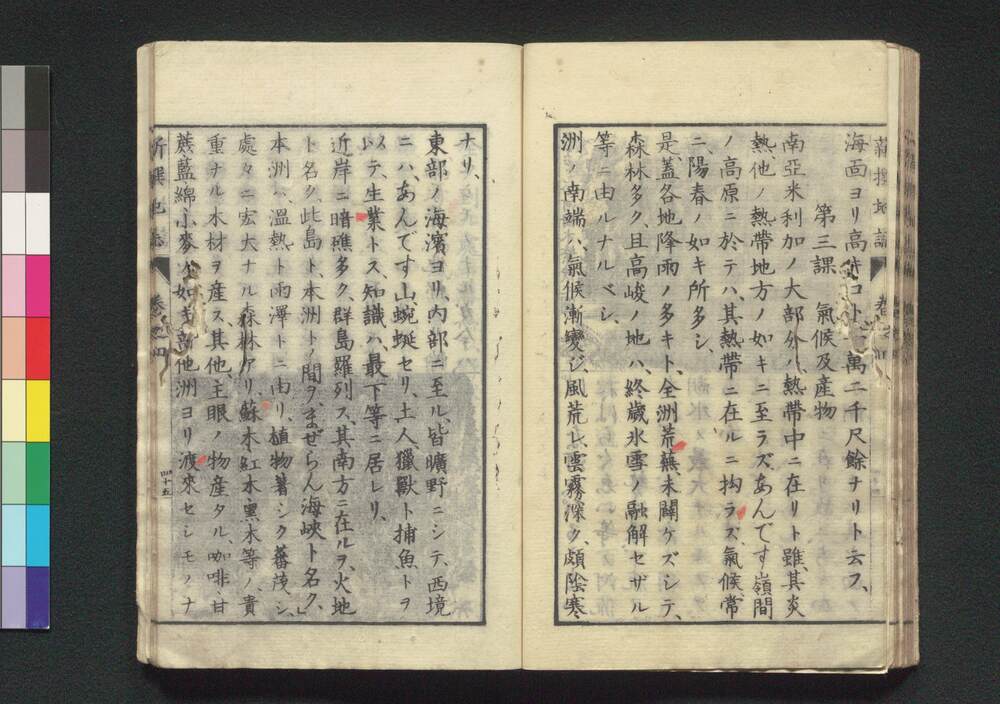 海面ヨリ高キコト一萬二千尺餘ナリト云フ、
第三課　氣候及產物
南亞米利加ノ大部分ハ、熱帶中ニ在リト雖、其炎
熱、他ノ熱帶地方ノ如キニ至ラズ、あんです嶺間
ノ高原ニ於テハ、其熱帶ニ在ルニ拘ラズ、氣候常
ニ陽春ノ如キ所多シ、
是、蓋各地降雨ノ多キト、全洲荒蕪未闢ケズシテ、
森林多ク、且高峻ノ地ハ、終歲氷雪ノ融解セザル
等ニ由ルナルベシ、
洲ノ南端ハ、氣候漸變ジ、風荒レ、雲霧深ク、頗陰寒
ナリ、
東部ノ海濱ヨリ、內部ニ至ル、皆曠野ニシテ、西境
ニハ、あんです山、蜿蜒セリ、土人獵獸ト捕魚トヲ
以テ、生業トス、知識ハ、最下等ニ居レリ、
近岸ニ暗礁多ク、群島羅列ス、其南方ニ在ルヲ、火地
ト名ク、此島ト、本洲トノ間ヲ、まぜらん海峽ト名ク、
本洲ハ、溫熱ト雨澤トニ由リ、植物著シク蕃茂シ、
處々ニ宏大ナル森林アリ、蘇木、紅木、黑木等ノ、貴
重ナル木材ヲ產ス、其他、主眼ノ物產タル、咖啡、甘
蔗、藍、綿、小麥ノ如キ、皆他洲ヨリ渡來セシモノナ
新撰地誌
卷之四
四十五